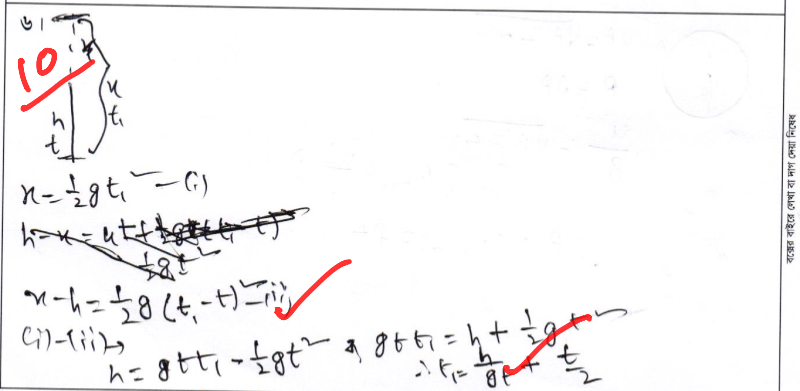 ৬।
10
h
x
t₁
h
t
x = ½gt₁² —(i)
x-h = ½g(t₁-t)² —(ii)
(i)-(ii)→
h = gtt₁ - ½gt² ∴ gtt₁ = h + ½gt²
∴ t₁ = h/gt + t/2
বক্সের বাইরে লেখা বা দাগ দেয়া নিষেধ